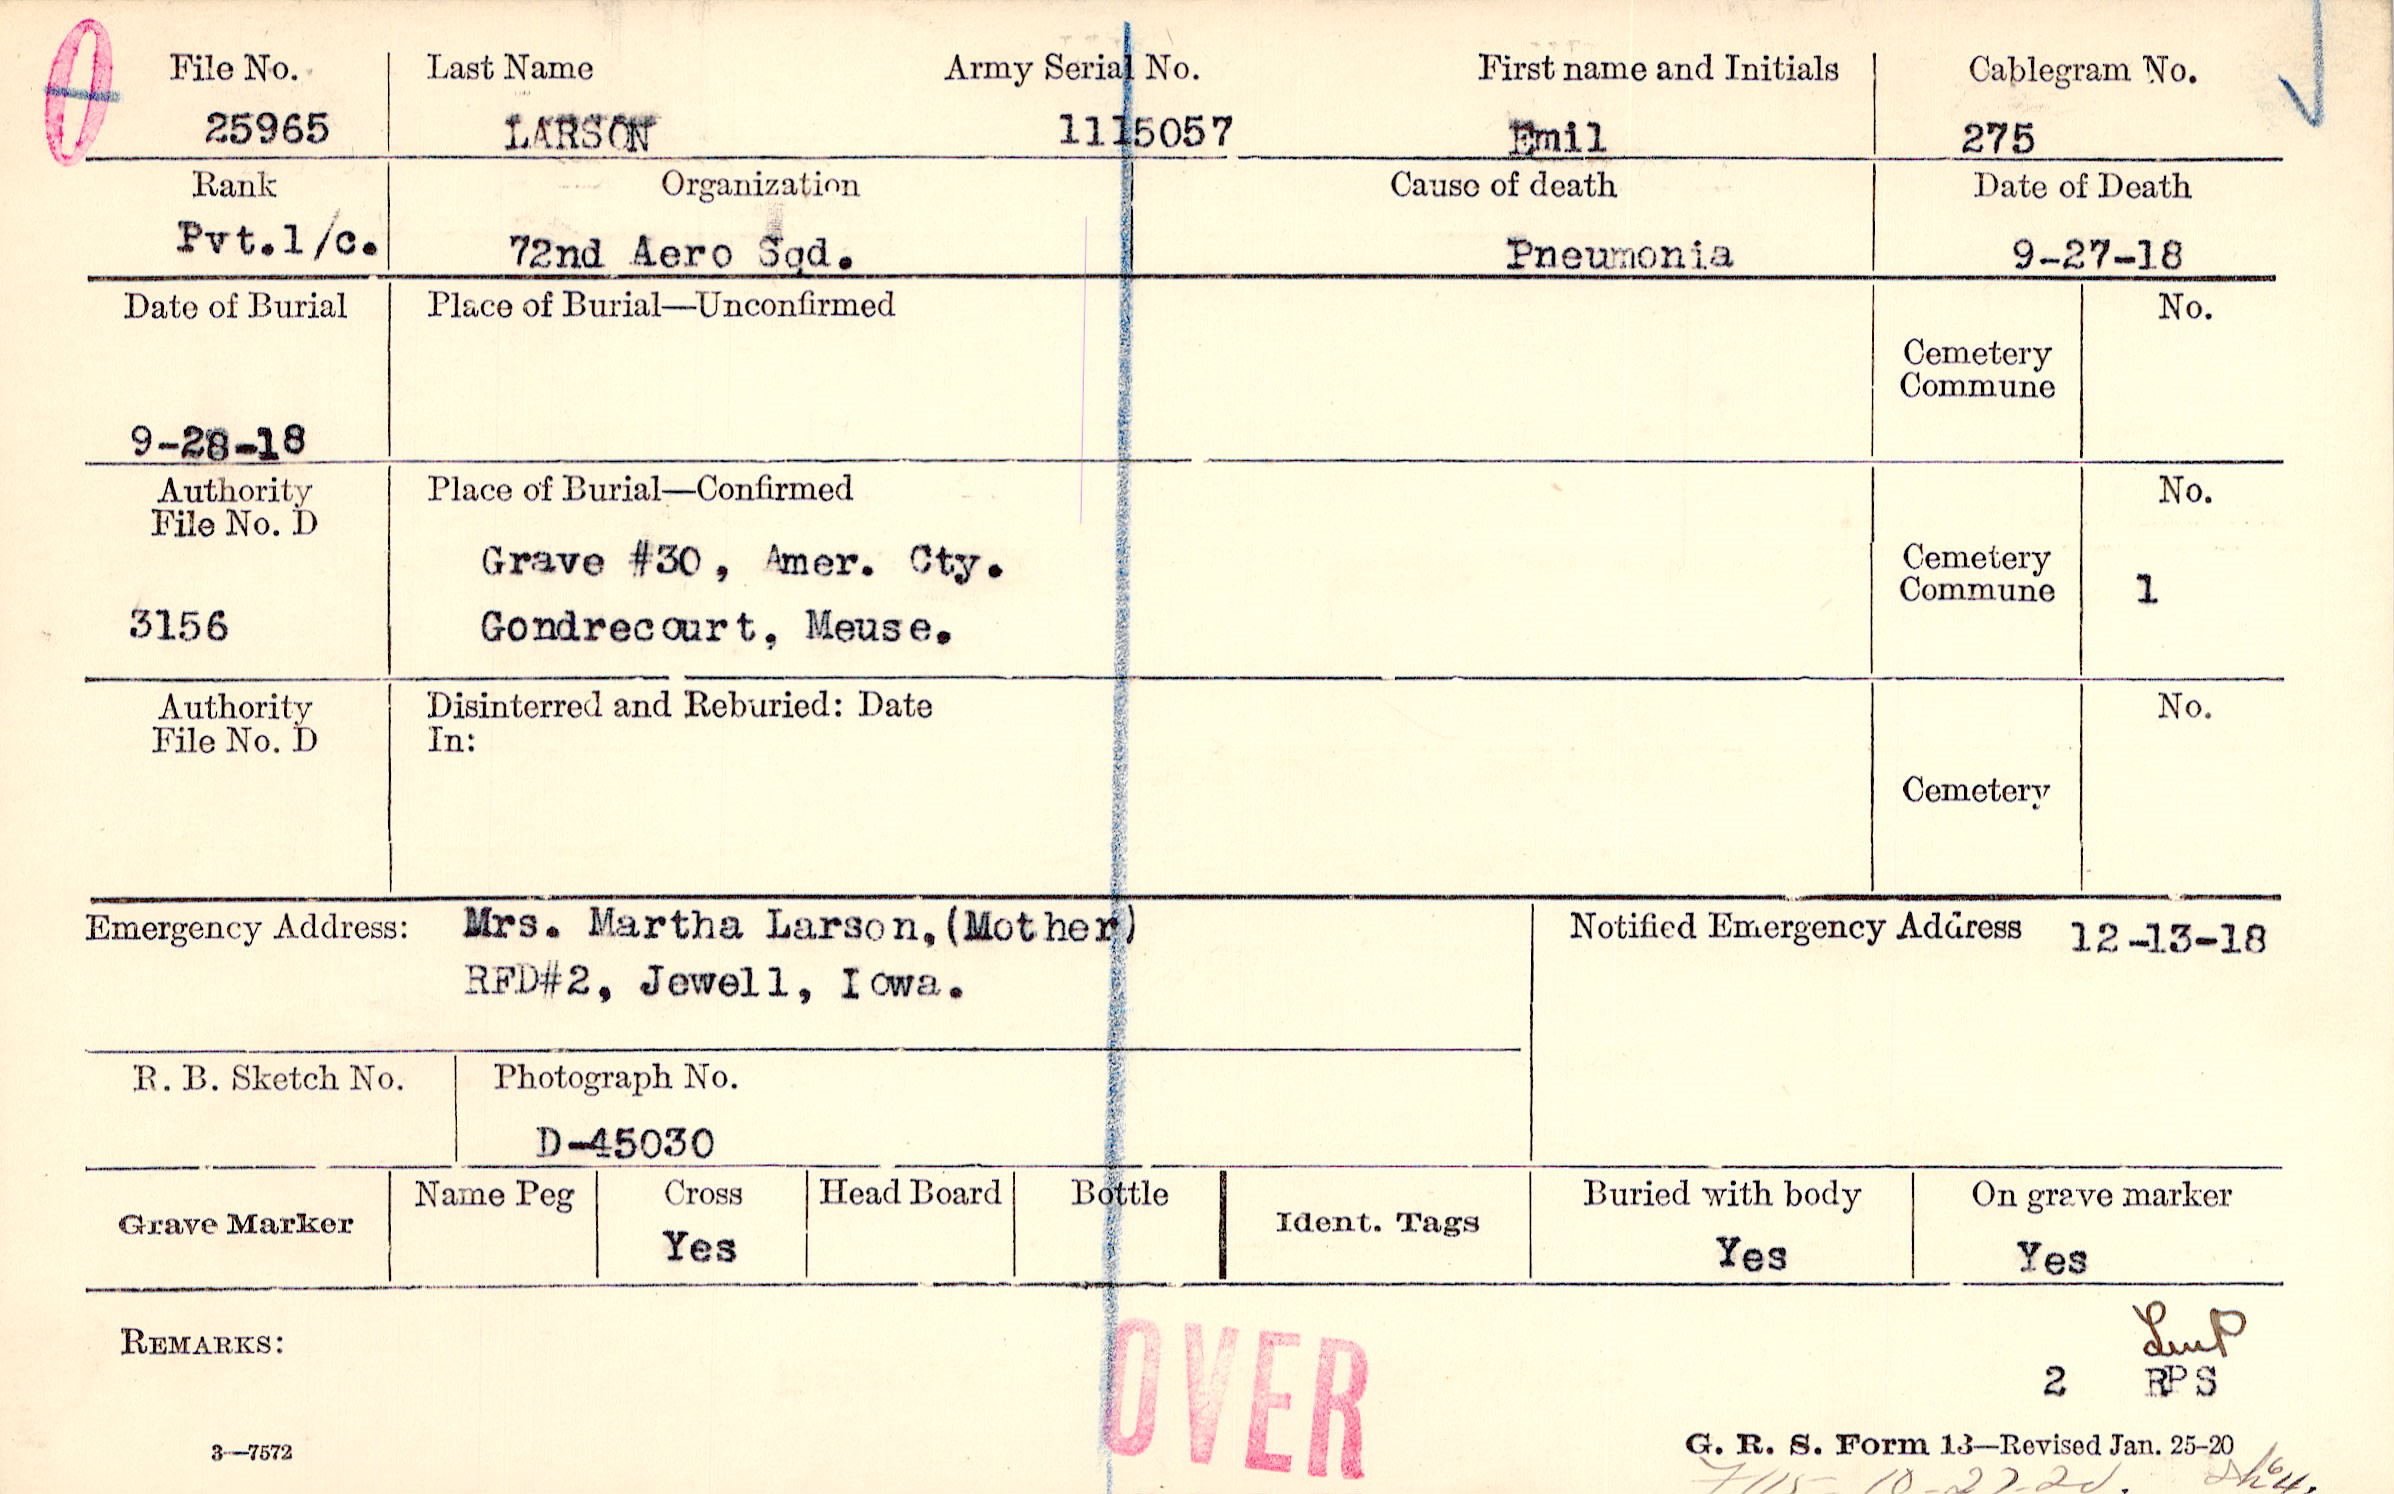 File No. Last Name Army Serial No. First name and Initials Cablegram No.
25965 LARSON 1115057 Emil 275
Rank Organization Cause of death Date of Death
Pvt.1/c. 72nd Aero Sqd. Pneumonia 9-27-18
Date of Burial Place of Burial—Unconfirmed No.
Cemetery
Commune
9-28-18
Authority Place of Burial—Confirmed No.
File No. D
Grave #30, Amer. Cty. Cemetery
Commune 1
3156 Gondrecourt, Meuse.
Authority Disinterred and Reburied: Date No.
File No. D In:
Cemetery
Emergency Address: Mrs. Martha Larson,(Mother) Notified Emergency Address 12-13-18
RFD#2, Jewell, Iowa.
R. B. Sketch No. Photograph No.
D-45030
Name Peg Cross Head Board Bottle Buried with body On grave marker
Grave Marker Ident. Tags
Yes Yes Yes
REMARKS:
OVER
2 RPS
3—7572 G. R. S. Form 13—Revised Jan. 25-20